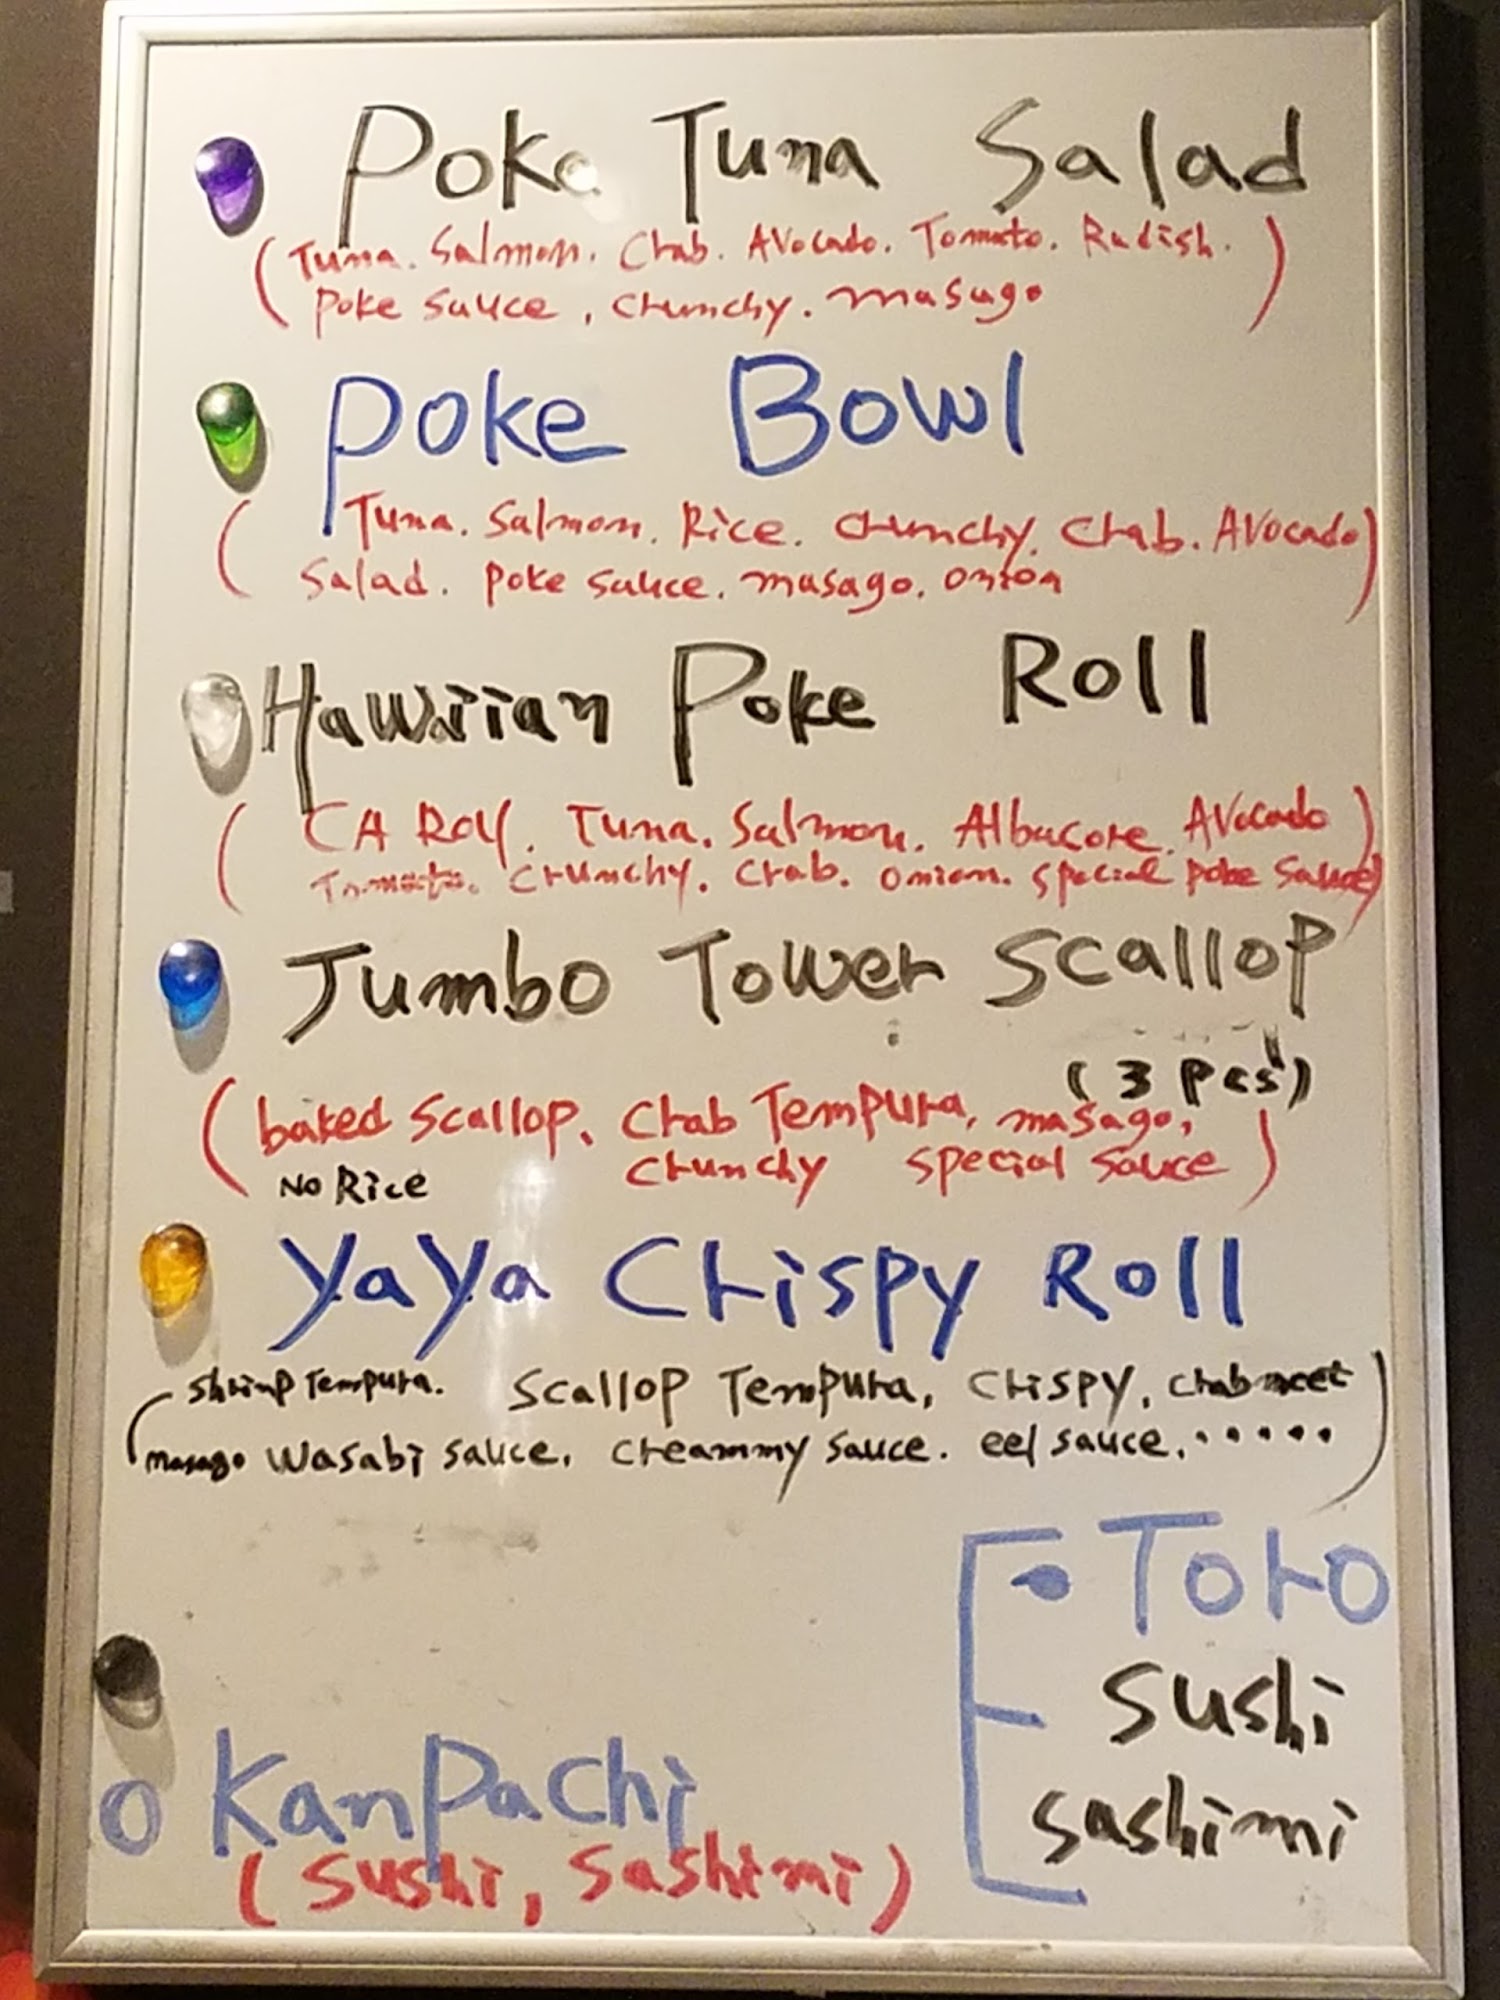 Poke Tuna Salad
(Tuna. Salmon. Crab. Avocado. Tomato. Radish.
Poke sauce, crunchy. masago)
Poke Bowl
(Tuna. Salmon. Rice. crunchy. Crab. Avocado
Salad. poke sauce. masago. onion)
Hawiian Poke Roll
(CA Roll. Tuna. Salmon. Albacore. Avocado
Tomato. crunchy. crab. onion. special poke sauce)
Jumbo Tower Scallop
(3 pcs)
(baked scallop, Crab Tempura, masago,
No Rice crunchy special sauce)
YaYa Crispy Roll
(Shrimp Tempura. Scallop Tempura, crispy, crab meet
masago wasabi sauce, creammy sauce. eel sauce......)
• Toro
sushi
sashimi
O Kanpachi
(sushi, sashimi)